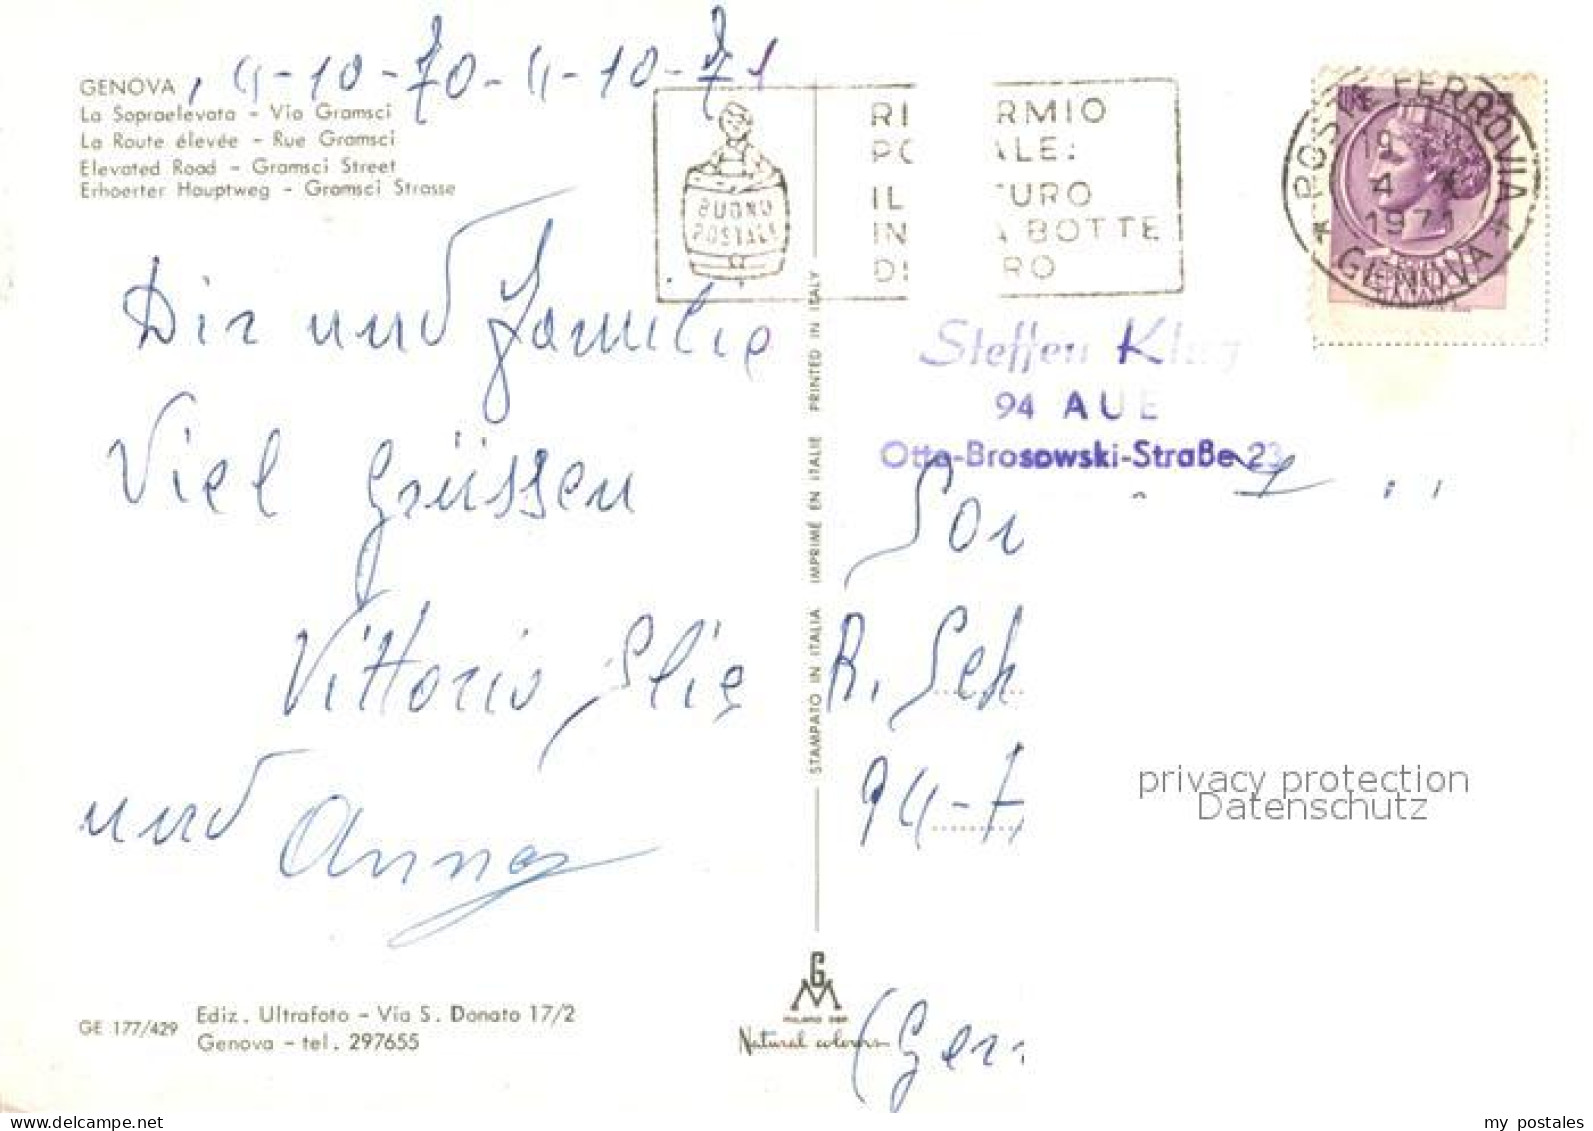 GENOVA, 4-10-70-4-10-71
La Sopraelevata - Via Gramsci
La Route élevée - Rue Gramsci
Elevated Road - Gramsci Street
Erhoerter Hauptweg - Gramsci Strasse
BUONO
POSTALE
RI RMIO
PO ALE:
IL TURO
IN A BOTTE
DI RO
POSTE FERROVIA
19
4 X
1971
GENOVA
Dir und Familie
Viel Grüssen
Vittorio Elie
und Anna
STAMPATO IN ITALIA IMPRIMÉ EN ITALIE PRINTED IN ITALY
Steffen Klug
94 AUE
Otto-Brosowski-Straße 23
R. Seh
94-
(Ger
privacy protection
Datenschutz
GE 177/429
Ediz. Ultrafoto - Via S. Donato 17/2
Genova - tel. 297655
GM
MILANO DEP.
Natural colours
my postales